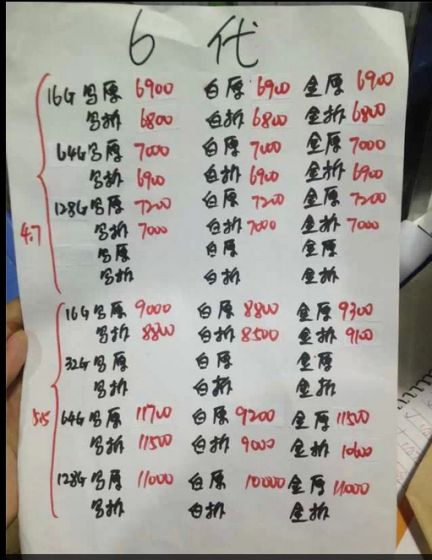 6代
16G 乌原 6900 白原 6900 金原 6900
乌拆 6800 白拆 6800 金拆 6800
64G 乌原 7000 白原 7000 金原 7000
乌拆 6900 白拆 6900 金拆 6900
128G 乌原 7200 白原 7200 金原 7200
4.7 乌拆 7000 白拆 7000 金拆 7000
乌原 白原 金原
乌拆 白拆 金拆
16G 乌原 9000 白原 8800 金原 9300
乌拆 8800 白拆 8500 金拆 9100
32G 乌原 白原 金原
乌拆 白拆 金拆
5.5 64G 乌原 11700 白原 9200 金原 11500
乌拆 11500 白拆 9000 金拆 10600
128G 乌原 11000 白原 10000 金原 11000
乌拆 白拆 金拆